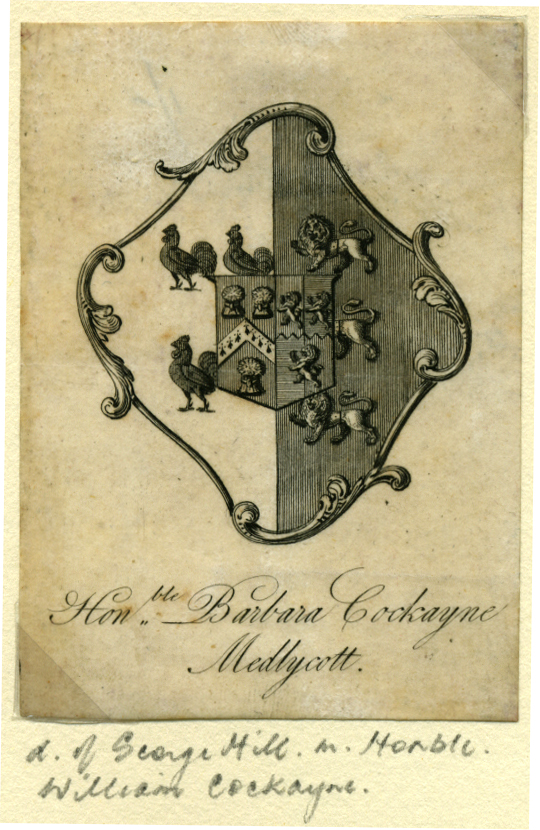 Hon,,ble Barbara Cockayne
Medlycott.
d. of George Hill. m. Honble.
William Cockayne.